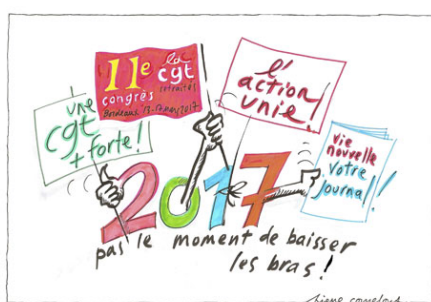 11e
congrès
la
cgt
retraités
Bordeaux
2017
une
cgt
+ forte !
l'
action
unie !
Vie
nouvelle
votre
journal !
2017
pas le moment de baisser
les bras !